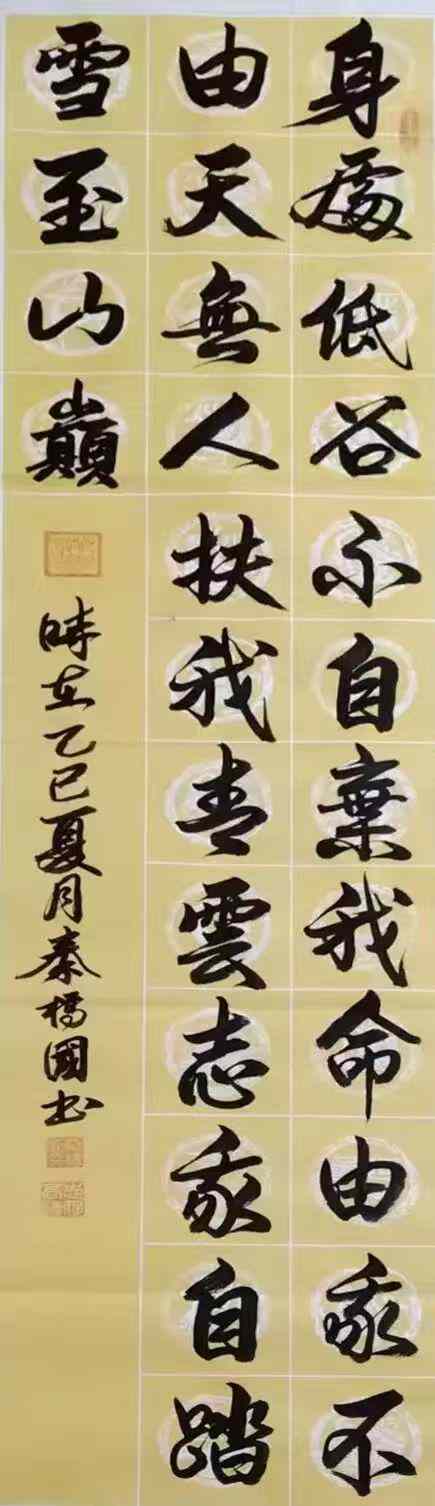 身處低谷不自棄我命由我不
由天無人扶我青雲志我自踏
雪至山巔
時在乙巳夏月秦橋國书